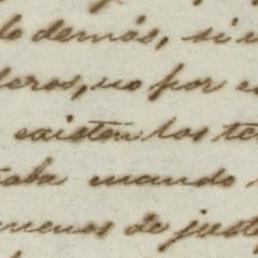 lo demás, si
deros, no por e
existen los te
taba cuando
menos de just